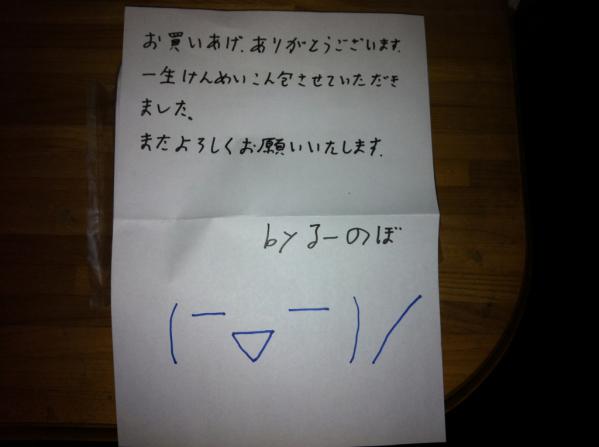 お買いあげ、ありがとうございます。
一生けんめいこん包させていただき
ました。
またよろしくお願いいたします。
by るーのぼ
(￣▽￣)／